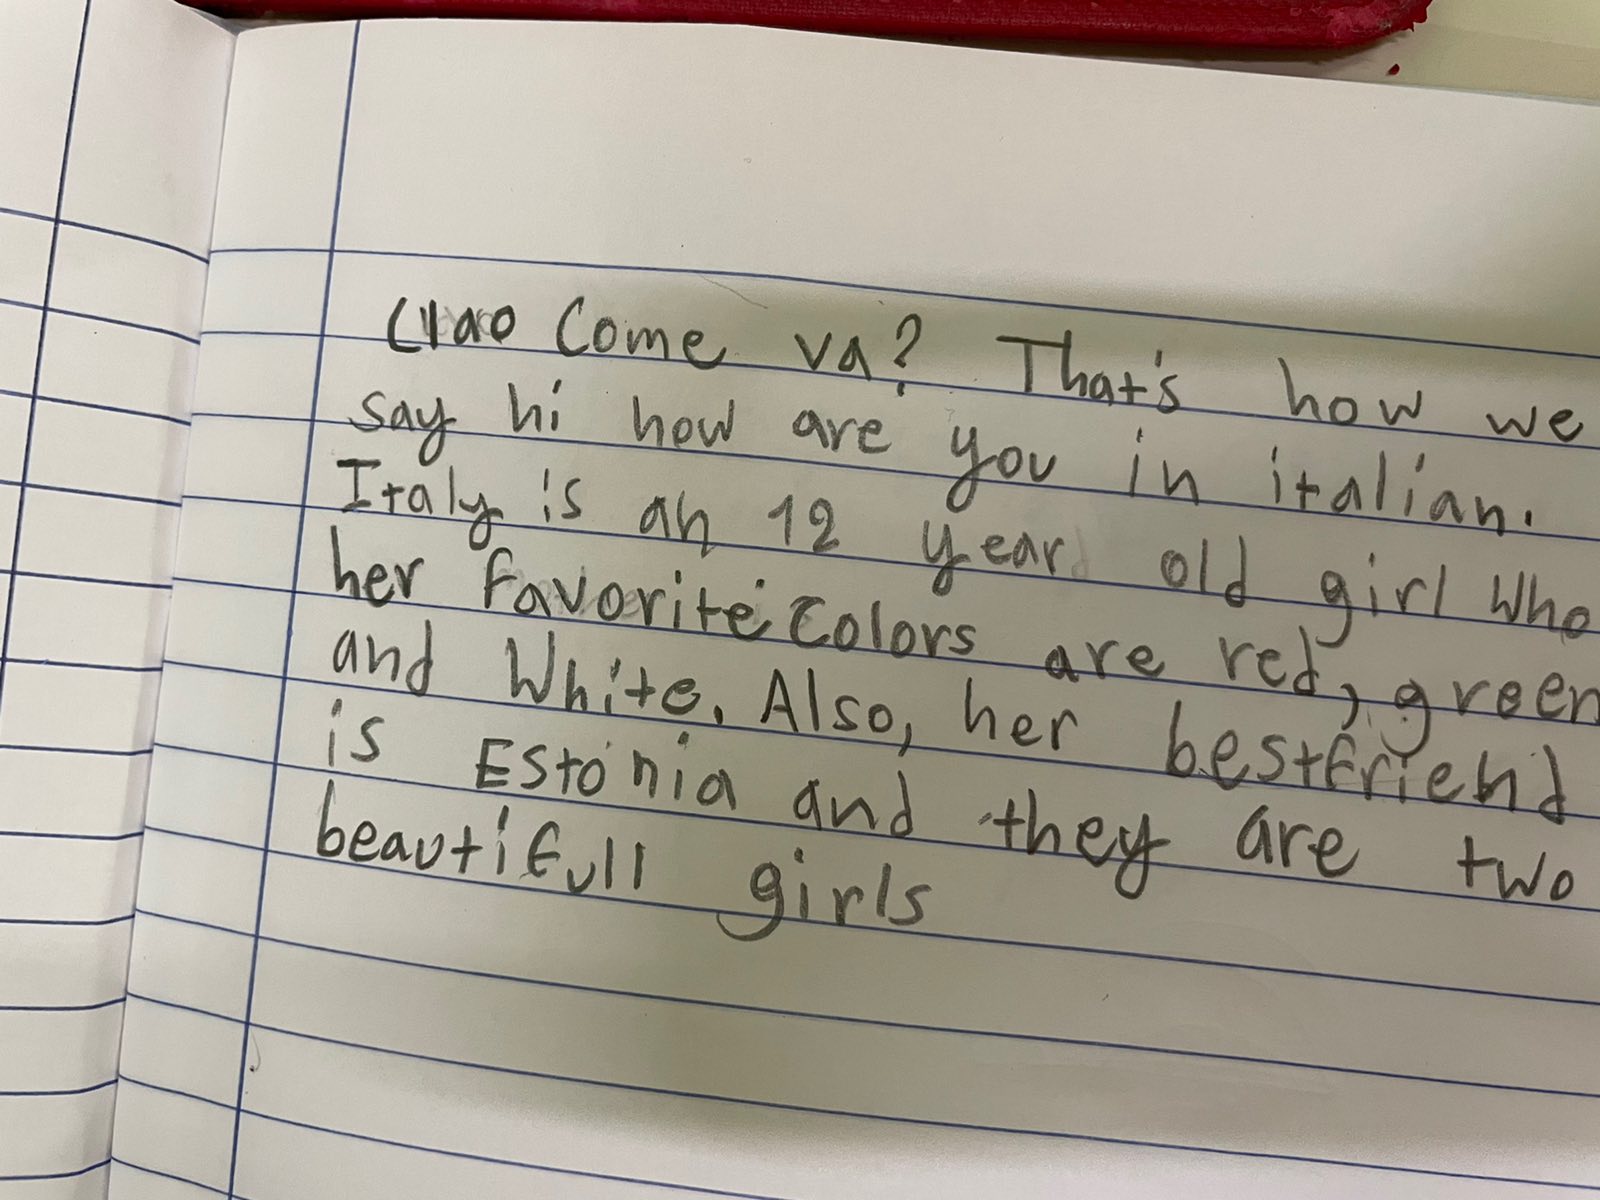 Ciao Come va? That's how we
say hi how are you in italian.
Italy is an 12 year old girl Who
her favorite Colors are red, green
and White. Also, her bestfriend
is Estonia and they are two
beautifull girls